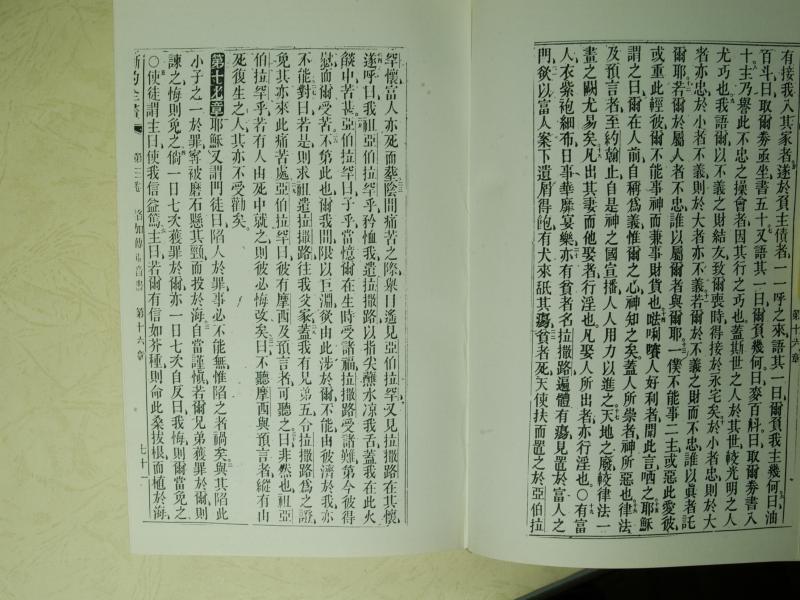 有接我入其家者遂於貧主債者一一呼之來語其一曰爾負我主幾何曰油
百斗曰取爾券亟坐書五十又語其一曰爾負幾何曰麥百斛曰取爾券書八
十主乃譽此不忠之操會者因其行之巧也蓋斯世之人於其世較光明之人
尤巧也我語爾以不義之財結友致爾喪時得接於永宅矣於小者忠則於大
者亦忠於小者不義則於大者亦不義若爾於不義之財而不忠誰以眞者託
爾耶若爾於屬人者不忠誰以屬爾者與爾耶一僕不能事二主或惡此愛彼
或重此輕彼爾不能事神而兼事財貨也㗭唎㘔人好利者聞此言哂之耶穌
謂之曰爾在人前自稱爲義惟爾之心神知之矣蓋人所崇者神所惡也律法
及預言者至約翰止自是神之國宣播人人用力以進之天地之廢較律法一
畫之闕尤易矣凡出其妻而他娶者行淫也凡娶人所出者亦行淫也○有富
人衣紫袍細布日事華靡宴樂亦有貧者名拉撒路遍體有瘍見置於富人之
門欲以富人案下遺屑得飽有犬來舐其瘍貧者死天使扶而置之於亞伯拉
第十六章
罕懷富人亦死而葬陰間痛苦之際舉目遙見亞伯拉罕又見拉撒路在其懷
遂呼曰我祖亞伯拉罕乎矜恤我遣拉撒路以指尖蘸水凉我舌蓋我在此火
燄中苦甚亞伯拉罕曰子乎當憶爾在生時受諸福拉撒路受諸難第今彼得
慰而爾受苦不第此也爾我間限以巨淵欲由此涉於爾不能由彼濟於我亦
不能對曰若是則求祖遣拉撒路往我父家蓋我有兄弟五令拉撒路爲之證
免其亦來此痛苦處亞伯拉罕曰彼有摩西及預言者可聽之曰非然也祖亞
伯拉罕乎若有人由死中就之則彼必悔改矣曰不聽摩西與預言者縱有由
死復生之人其亦不受勸矣
第十七章耶穌又謂門徒曰陷人於罪事必不能無惟陷之者禍矣與其陷此
小子之一於罪寧被磨石懸其頸而投於海自當謹愼若爾兄弟獲罪於爾則
諫之悔則免之倘一日七次獲罪於爾亦一日七次自反曰我悔則爾當免之
○使徒謂主曰使我信益篤主曰若爾有信如芥種則命此桑拔根而植於海
新約全書 第三卷 路加傳福音書 第十六章 七十一